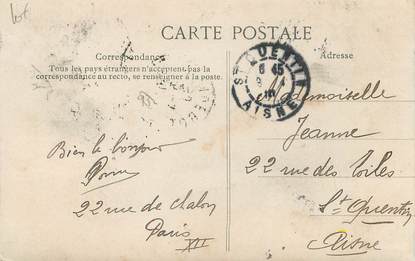 lot
CARTE POSTALE
Correspondance
Tous les pays étrangers n'acceptent pas la
correspondance au recto, se renseigner à la poste.
Bien le bonjour
22 rue de Chalon
Paris
XII
Adresse
ST QUENTIN
6 45
AISNE
Mademoiselle
Jeanne
22 rue des Toiles
St Quentin
Aisne